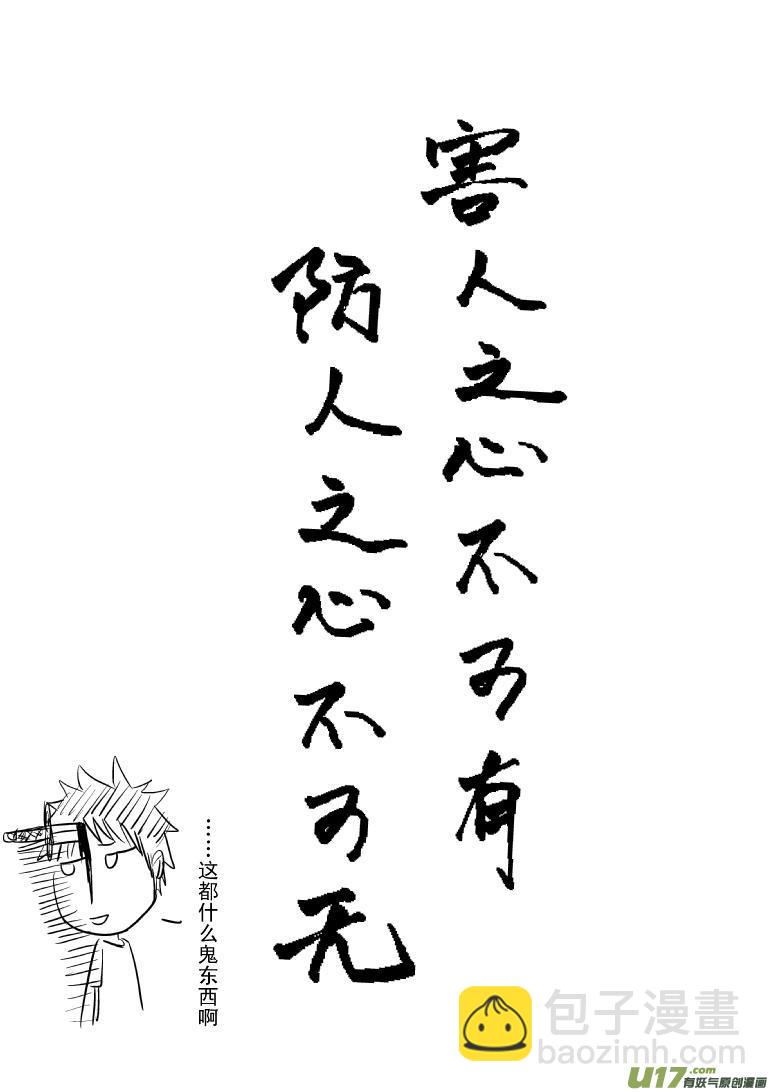 害人之心不可有
防人之心不可无
……这都什么鬼东西啊
包子漫畫
baozimh.com
U17.com
有妖气原创漫画